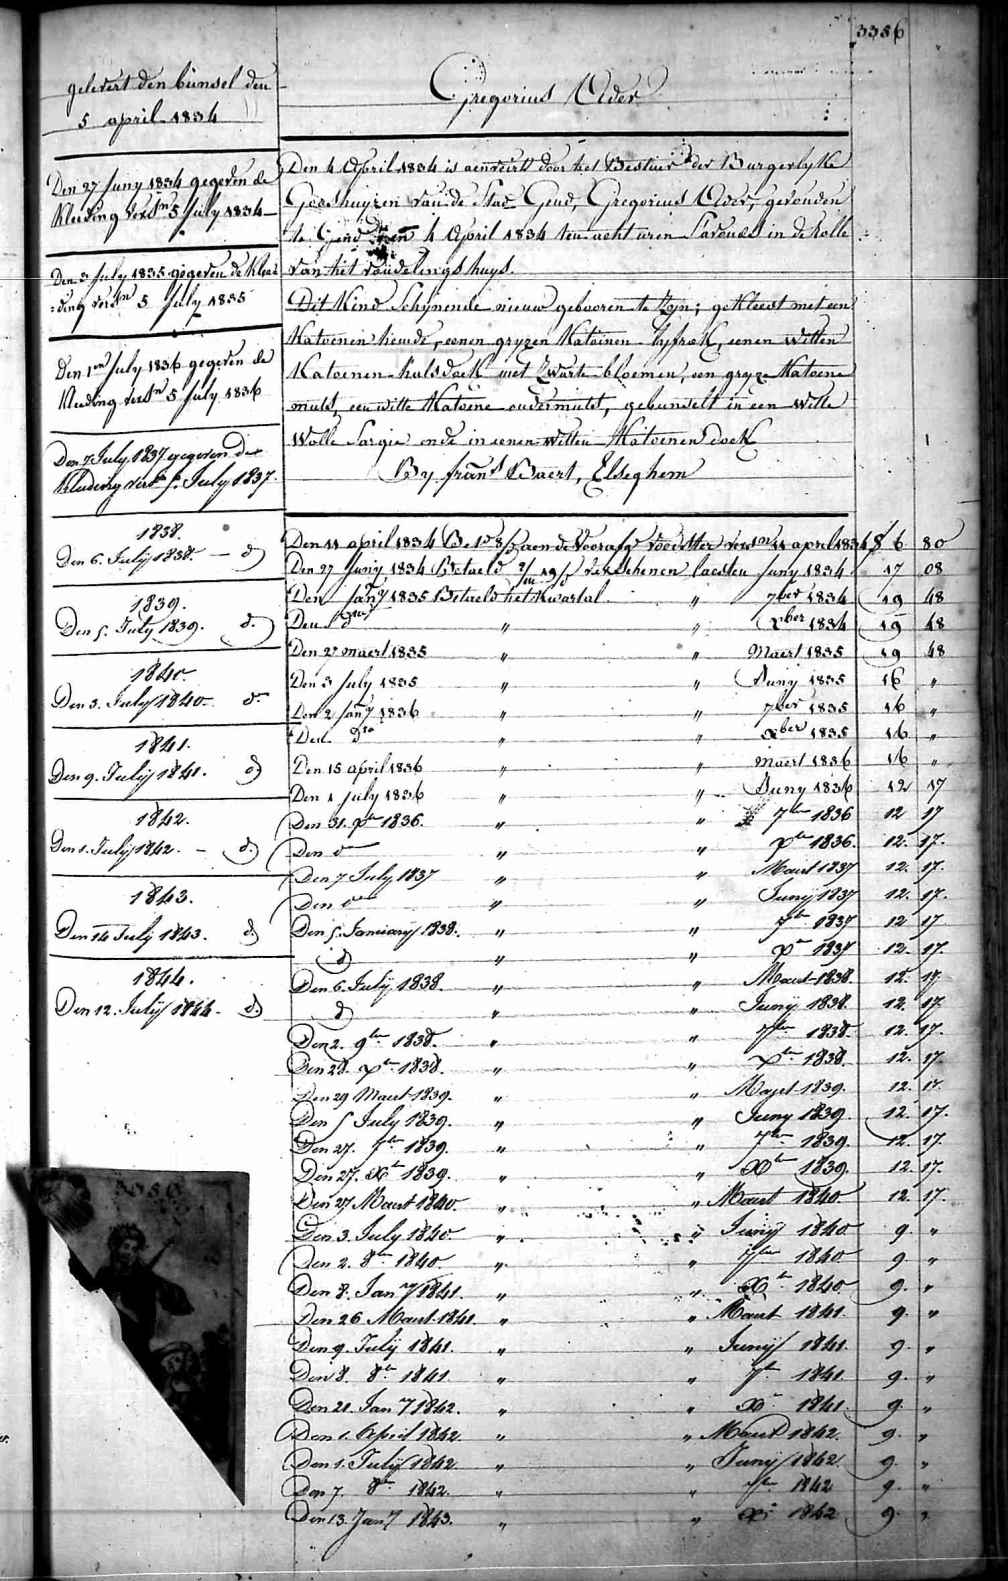 3356
gelevert den bunsel den
5 april 1834
Den 27 Juny 1834 gegeven de
Kleding versn 5 July 1834
Den 3 July 1835 gegeven de Klee
:ding versn 5 July 1835
Den 1en July 1836 gegeven de
Kleding versn 5 July 1836
Den 7 July 1837 gegeven de
Kledeing versn 5. July 1837.
1838.
Den 6. July 1838. — do
1839.
Den 5. July 1839. do.
1840.
Den 3. July 1840. do
1841.
Den 9. July 1841. do
1842.
Den 1. July 1842. — do
1843.
Den 14 July 1843. do
1844.
Den 12. July 1844. do
3356
Gregorius Ader
Den 4 April 1834 is aenveert door het Bestuer der Burgerlyke
Godshuyzen van de Stad Gend, Gregorius Ader, gevonden
te Gend den 4 April 1834 ten acht uren s'avends in de Rolle
van het vondelingshuys.
Dit Kind Schynende nieuw gebooren te zyn; gekleed met een
Katoenen hemde, eenen gryzen Katoenen lyfrok, eenen witten
Katoenen halsdoek met zwarte bloemen, een gryze Katoene
muts, een witte Katoene ondermuts, gebunselt in een witte
Wolle Sargie ende in eenen witten Katoenen doek
By frans Baert, Elseghem
Den 11 april 1834 Be. aen de Voorsz. voedster versn 11 april 1834 6 80
Den 27 Juny 1834 Betaeld verschenen laesten Juny 1834 17 08
Den Jany 1835 Betaeld het Kwartal " 7ber 1834 19 48
Den do " " xber 1834 19 48
Den 27 maert 1835 " " Maert 1835 19 48
Den 3 July 1835 " " Juny 1835 16 "
Den 2 Jany 1836 " " 7ber 1835 16 "
Den do " " xber 1835 16 "
Den 15 april 1836 " " maert 1836 16 "
Den 1 July 1836 " " Juny 1836 12 17
Den 31. xber 1836. " " 7ber 1836 12 17
Den do " " xber 1836. 12. 17.
Den 7 July 1837 " " Maert 1837 12. 17.
Den do " " Juny 1837 12. 17.
Den 5. January 1838. " " 7ber 1837 12 17
do " " xber 1837 12. 17.
Den 6. July 1838. " " Maert 1838 12. 17
do " " Juny 1838. 12. 17
Den 2. 9ber 1838. " " 7ber 1838. 12. 17.
Den 28. xber 1838. " " xber 1838. 12. 17.
Den 29 Maert 1839. " " Maert 1839. 12. 17.
Den 5 July 1839. " " Juny 1839. 12. 17.
Den 27. 7ber 1839. " " 7ber 1839. 12. 17.
Den 27. xber 1839. " " xber 1839 12. 17.
Den 27 Maert 1840. " " Maert 1840 12. 17.
Den 3. July 1840. " " Juny 1840 9. "
Den 2. 8ber 1840. " " 7ber 1840 9. "
Den 8. Jany 1841. " " xber 1840 9. "
Den 26 Maert 1841. " " Maert 1841. 9. "
Den 9. July 1841. " " Juny 1841 9. "
Den 8. 8ber 1841. " " 7ber 1841. 9. "
Den 21. Jany 1842. " " xber 1841. 9. "
Den 1. April 1842. " " Maert 1842. 9. "
Den 1. July 1842. " " Juny 1842 9. "
Den 7. 8ber 1842. " " 7ber 1842 9. "
Den 13. Jany 1843. " " xber 1842 9. "